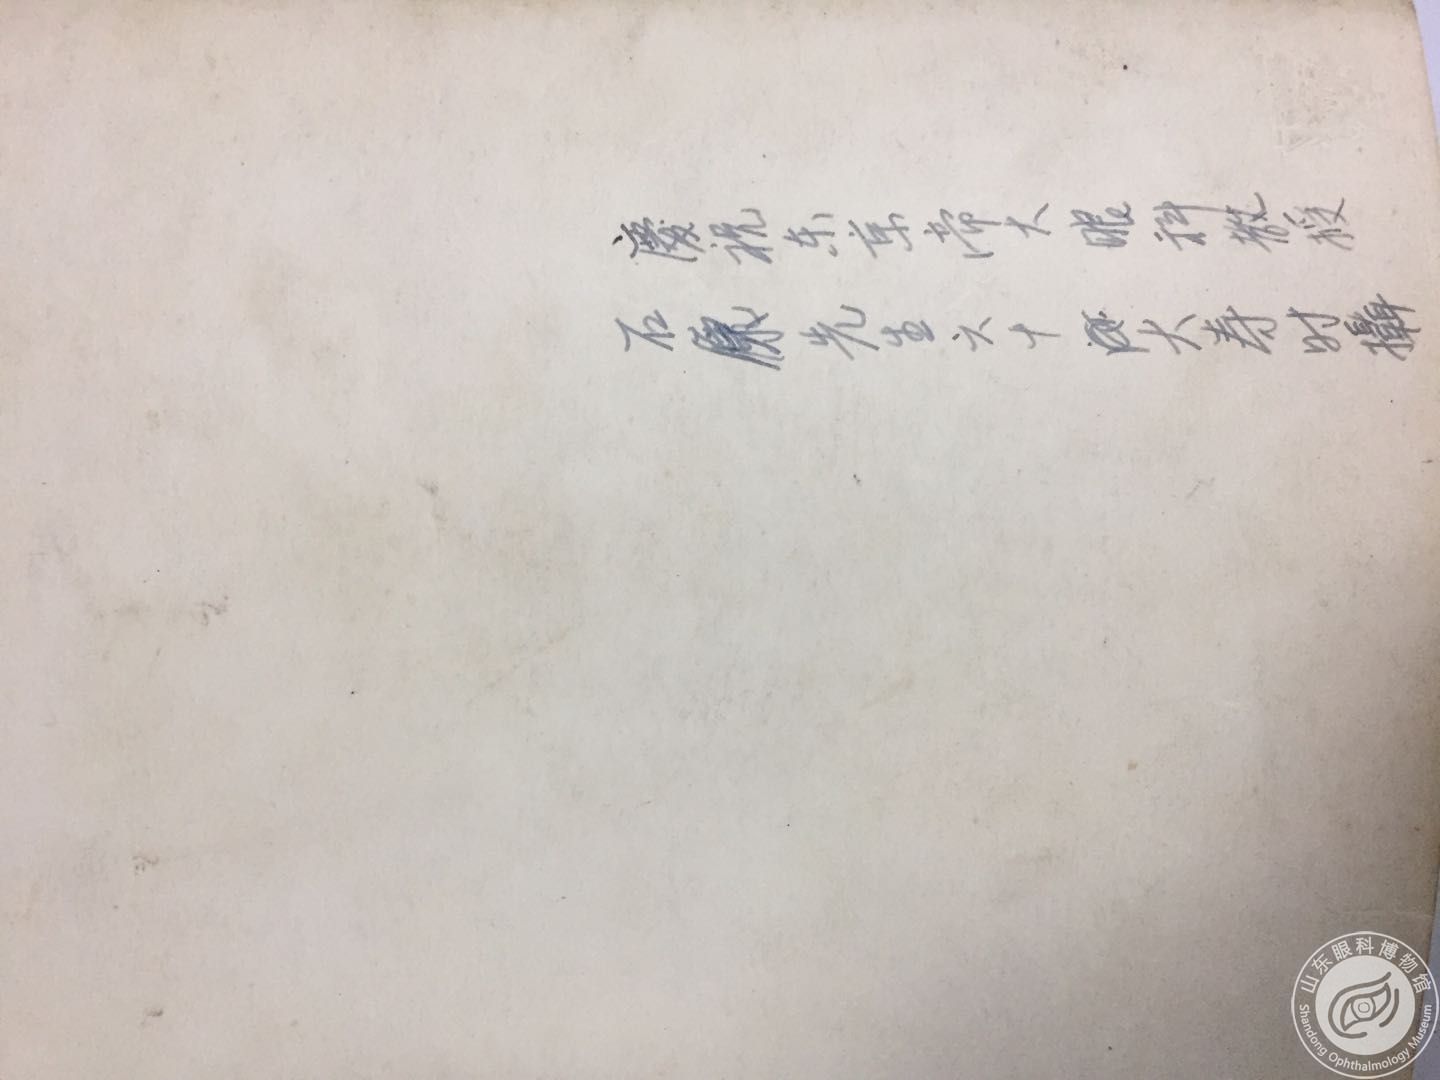 慶祝东京帝大眼科教授
石原先生六十歲大寿时攝
山东眼科博物馆
Shandong Ophthalmology Museum